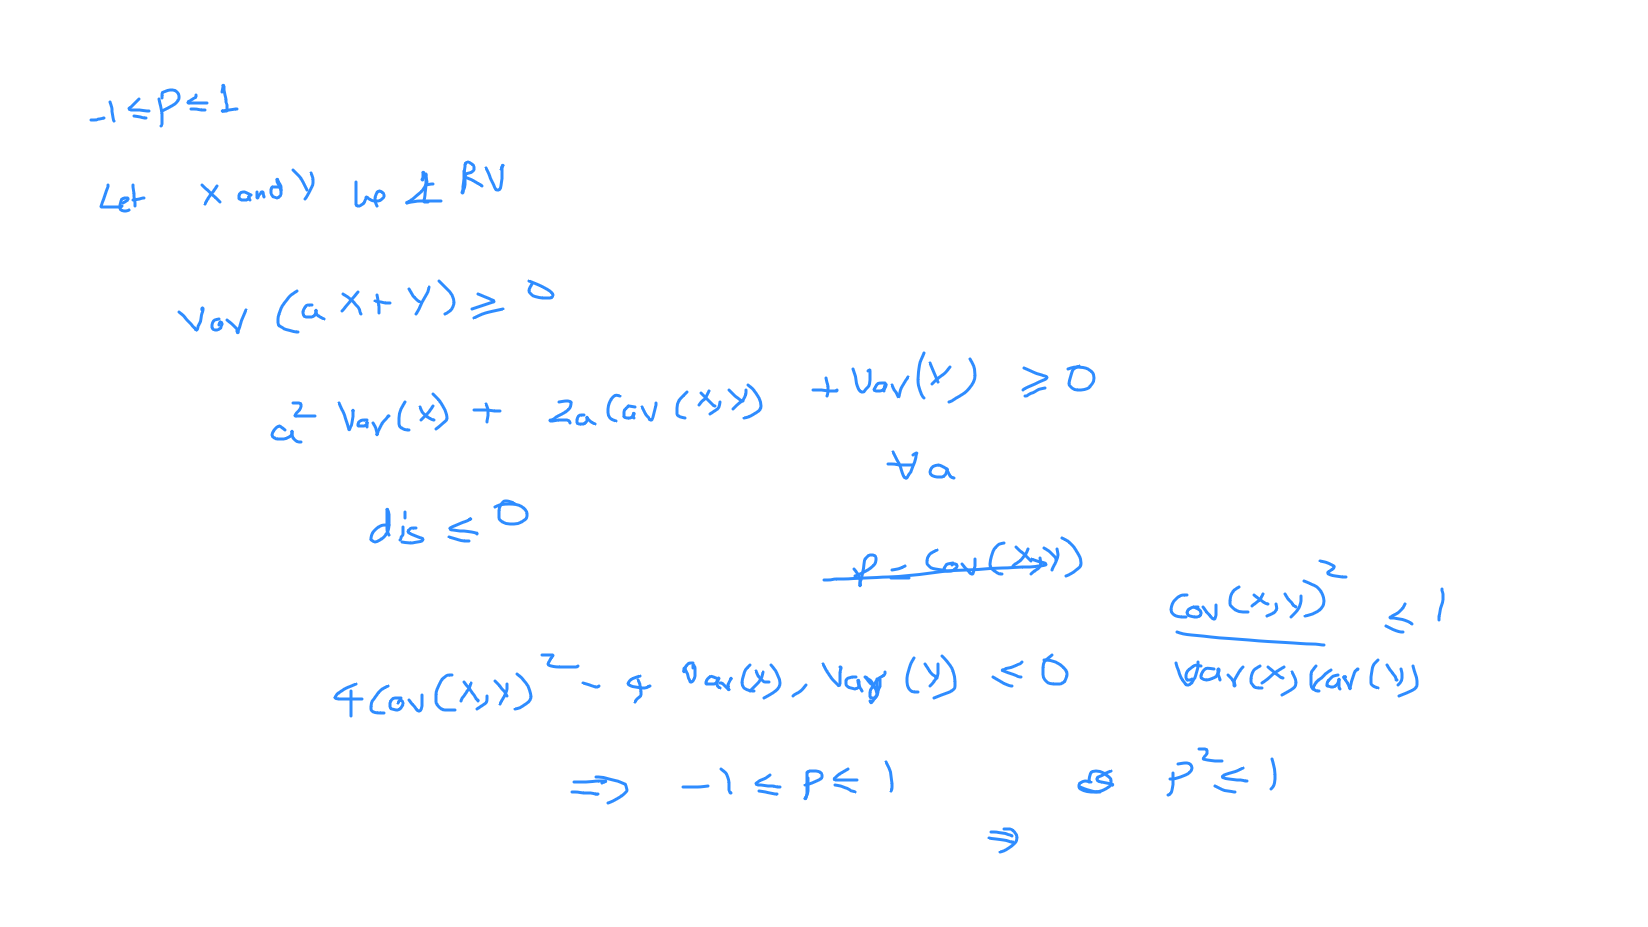 -1 ≤ ρ ≤ 1
Let X and Y be 2 RV
Var (aX + Y) ≥ 0
a² Var(X) + 2a Cov (X,Y) + Var(Y) ≥ 0
∀ a
dis ≤ 0
ρ = Cov(X,Y)
Cov(X,Y)² / Var(X) Var(Y) ≤ 1
4Cov(X,Y)² - 4 Var(X), Var (Y) ≤ 0
⇒ -1 ≤ ρ ≤ 1
ρ² ≤ 1
⇒